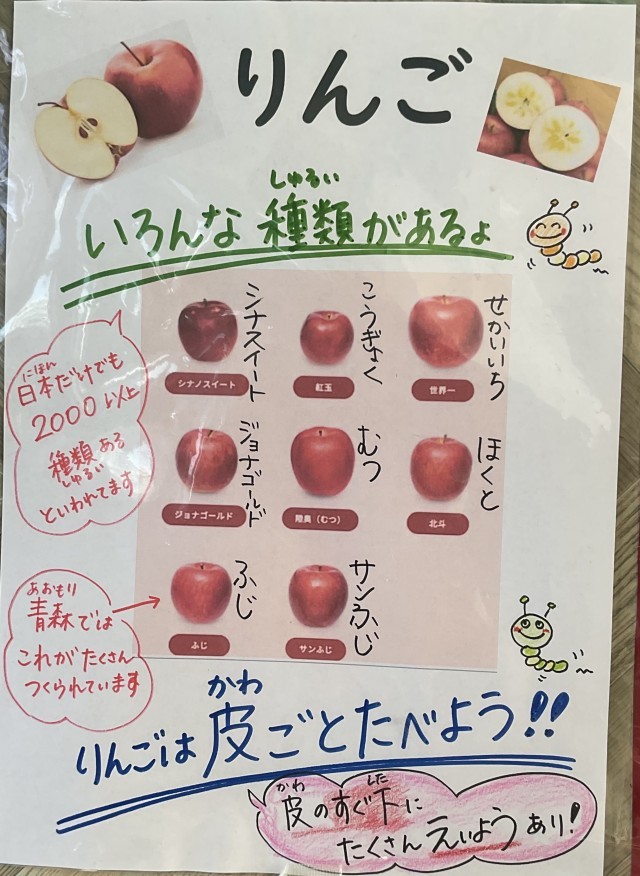 りんご
しゅるい
いろんな種類があるよ
シナスイート
シナノスイート
こうぎょく
紅玉
せかいいち
世界一
にほん
日本だけでも
2000以上
種類ある
しゅるい
といわれてます
ジョナゴールド
ジョナゴールド
むつ
陸奥（むつ）
ほくと
北斗
あおもり
青森では
これがたくさん
つくられています
ふじ
ふじ
サンふじ
サンふじ
かわ
りんごは皮ごとたべよう!!
かわ した
皮のすぐ下に
たくさんえいようあり!